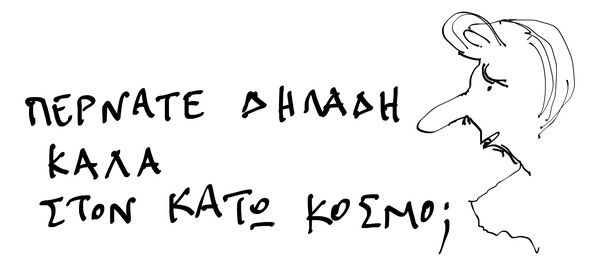 ΠΕΡΝΑΤΕ ΔΗΛΑΔΗ
ΚΑΛΑ
ΣΤΟΝ ΚΑΤΩ ΚΟΣΜΟ;